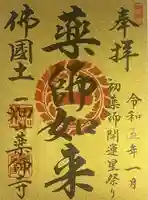 奉拝
令和五年一月
初薬師開運星祭り
薬師如来
佛國土
柳薬師寺